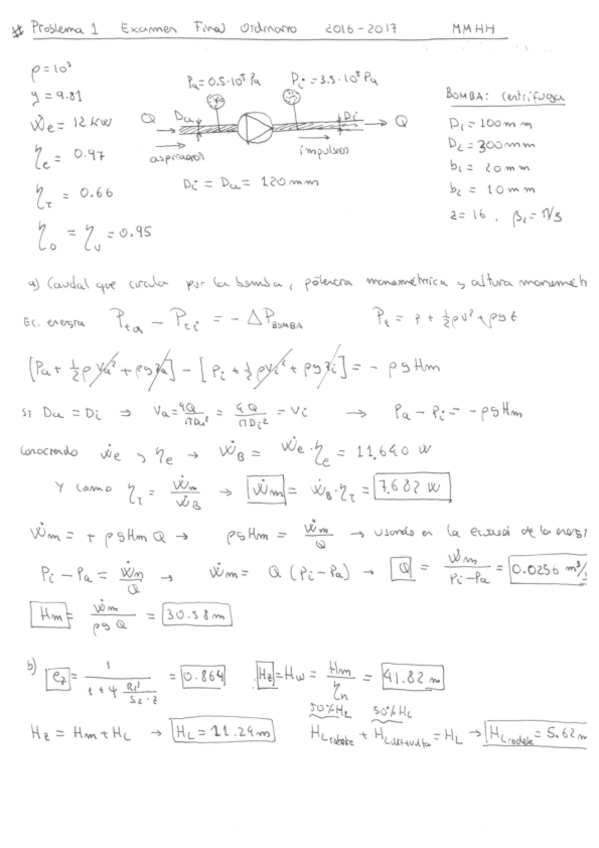 # Problema 1 Examen Final Ordinario 2016-2017 MMHH
ρ=10³
g=9.81
Ẇe = 12 kW
ηe = 0.97
ηT = 0.66
ηo = ηv = 0.95
Pa=0.5·10⁵ Pa Pi=3.5·10⁵ Pa
Q Da Di Q
aspiración impulsión
Di = Da = 120 mm
BOMBA: centrífuga
D1 = 100 mm
D2 = 300 mm
b1 = 20 mm
b2 = 10 mm
z = 16 .
a) Caudal que circula por la bomba, potencia manométrica y altura manomét
Ec. energía Pta - Pti = - ΔPBOMBA Pt = p + ½ρv² + ρgz
[Pa + ½ρva² + ρgza] - [Pi + ½ρvi² + ρgzi] = - ρgHm
si Da = Di ⇒ Va = 4Q/πDa² = 4Q/πDi² = Vi → Pa - Pi = - ρgHm
conociendo ẇe y ηe → ẆB = Ẇe·ηe = 11.640 W
Y como ηT = Ẇm/ẆB → Ẇm = ẆB·ηT = 7.682 W
Ẇm = + ρgHmQ → ρgHm = Ẇm/Q → usando en la ecuación de la energ
Pi - Pa = Ẇm/Q → Ẇm = Q (Pi - Pa) → Q = Ẇm/Pi-Pa = 0.0256 m³/
Hm = Ẇm/ρgQ = 30.58 m
b) ez = 1 = 0.864 Hz = Hw = Hm/ηh = 41.82 m
Hz = Hm + HL → HL = 11.24 m
50% HL 50% HL
HL rodete + HL = HL → HL rodete = 5.62 m